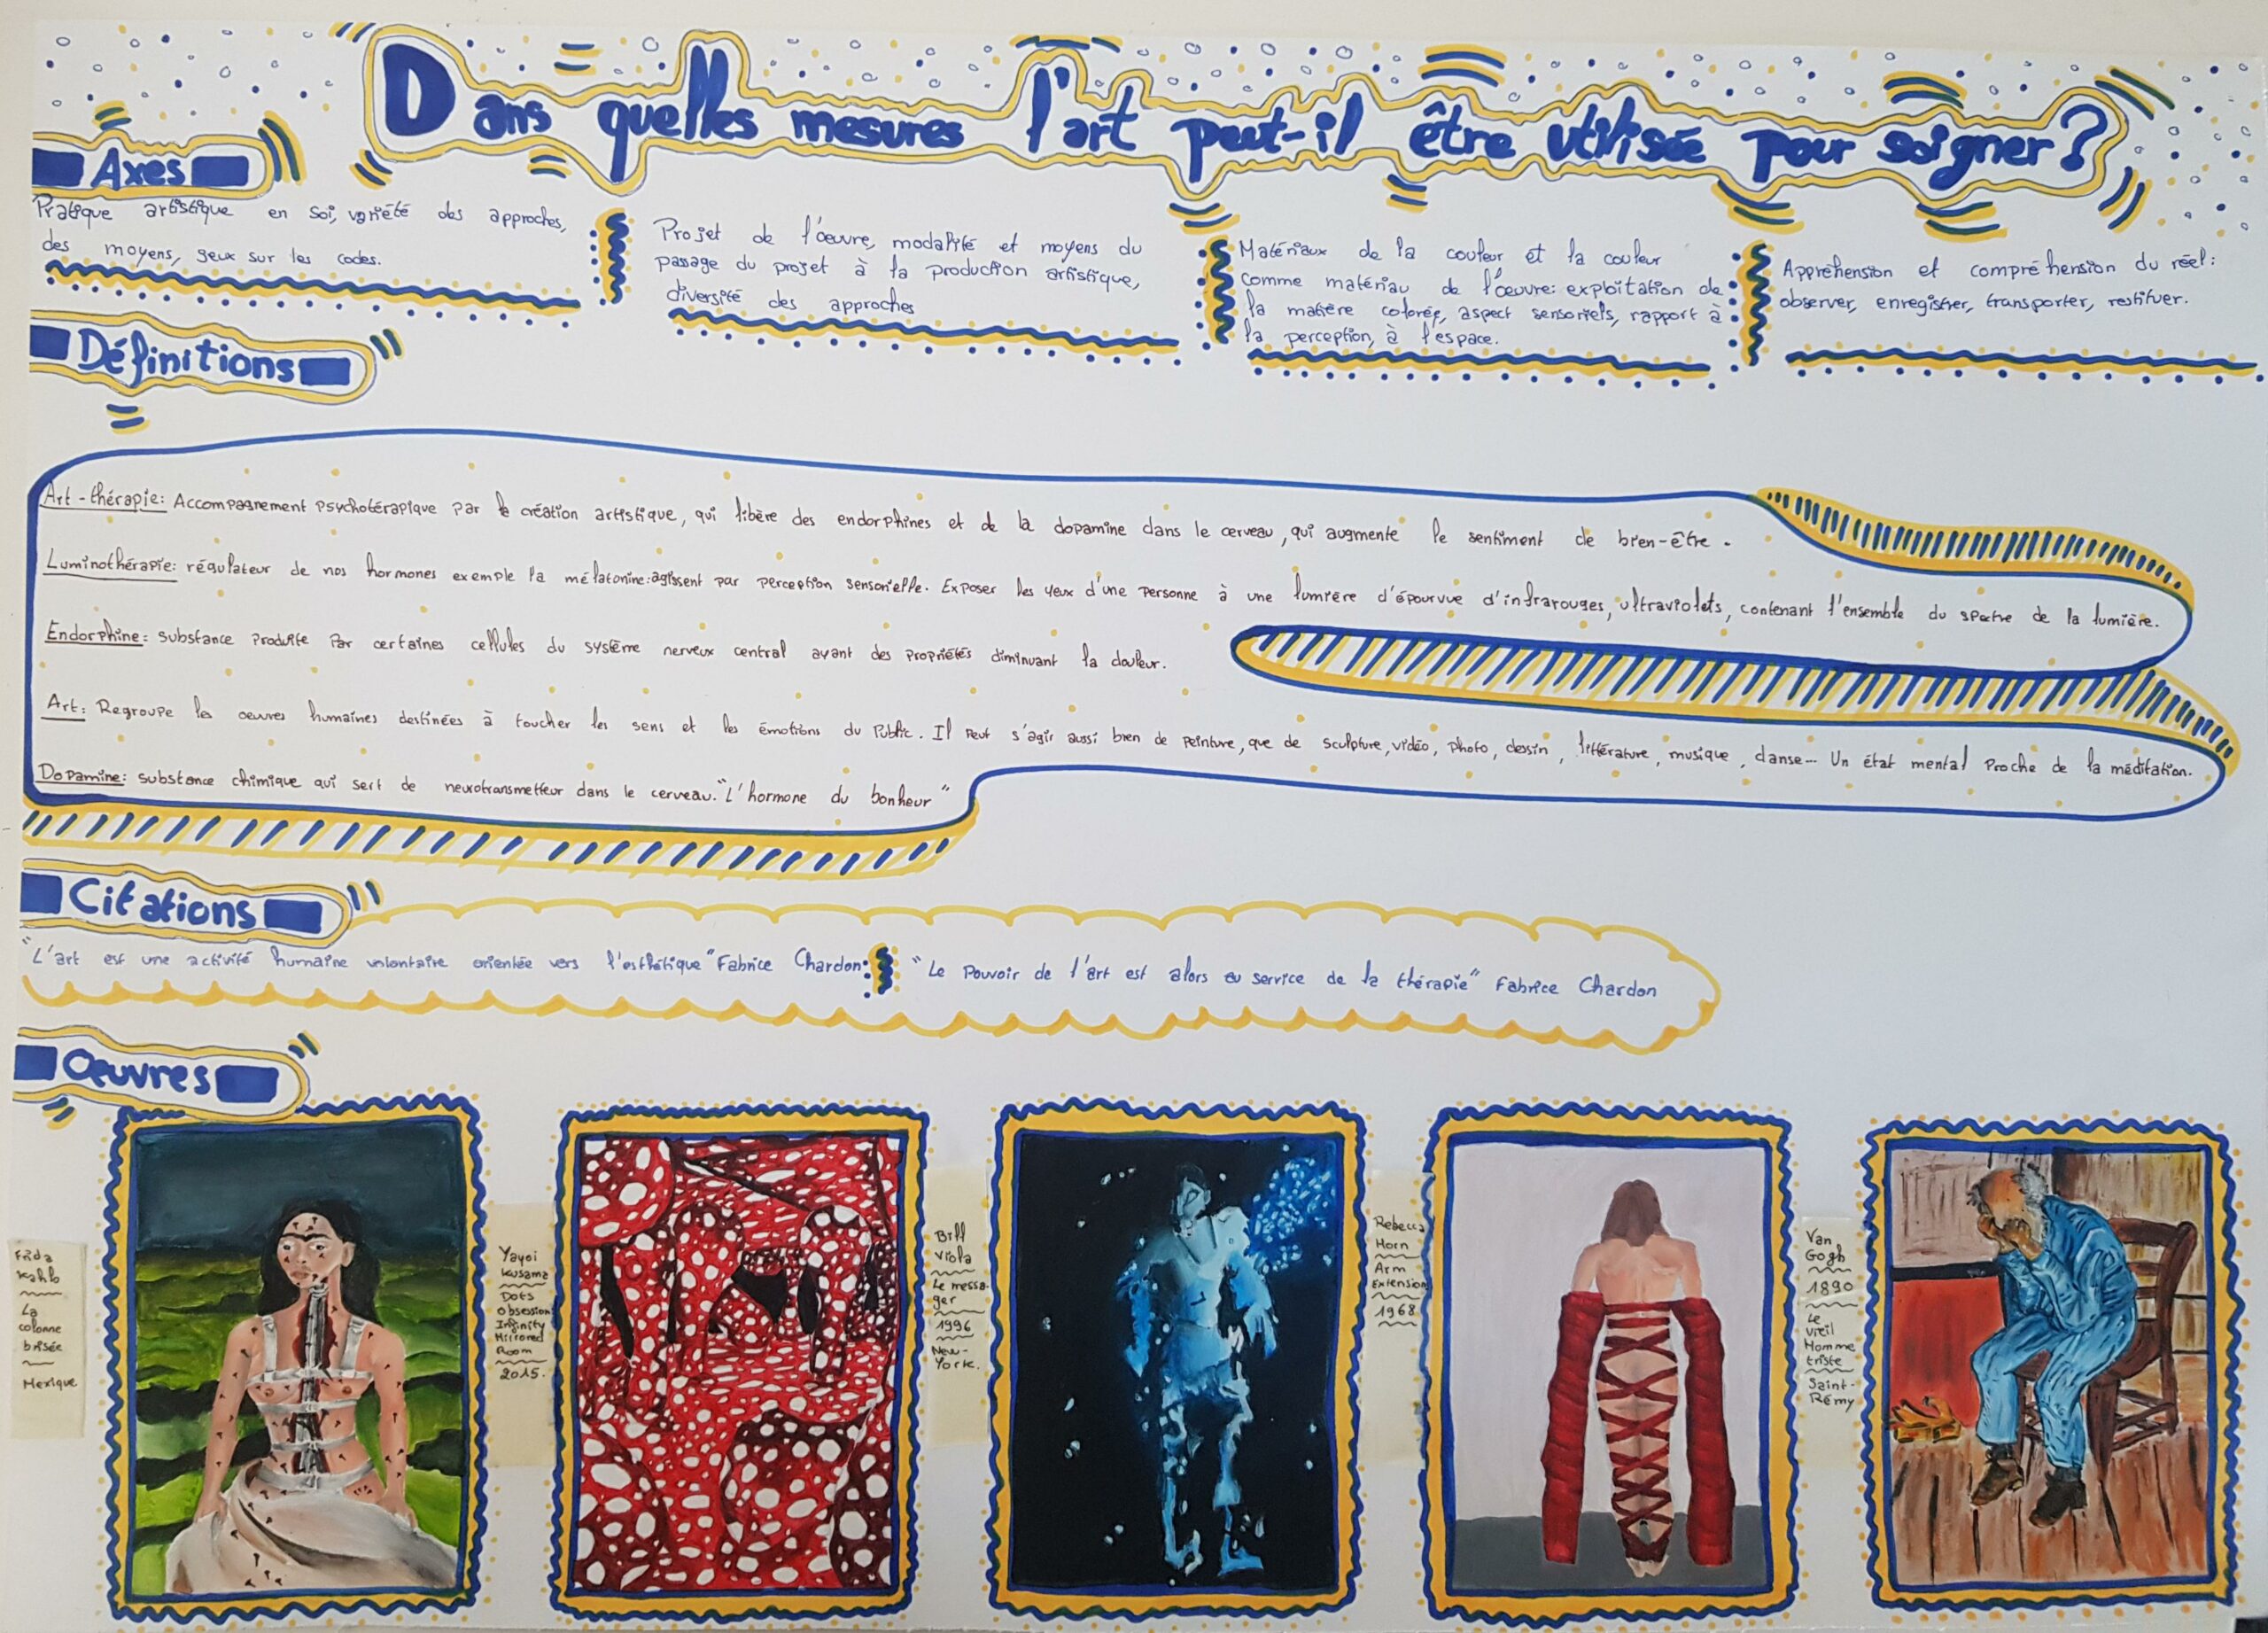 Dans quelles mesures l'art peut-il être utilisée pour soigner?
Axes
Pratique artistique en soi, variété des approches,
des moyens, jeux sur les codes.
Projet de l'œuvre, modalité et moyens du
passage du projet à la production artistique,
diversité des approches
Matériaux de la couleur et la couleur
comme matériau de l'œuvre: exploitation de
la matière colorée, aspect sensoriels, rapport à
la perception, à l'espace.
Appréhension et compréhension du réel:
observer, enregistrer, transporter, restituer.
Définitions
Art-thérapie: Accompagnement psychotérapique par la création artistique, qui libère des endorphines et de la dopamine dans le cerveau, qui augmente le sentiment de bien-être.
Luminothérapie: régulateur de nos hormones exemple la mélatonine: agissent par perception sensorielle. Exposer les yeux d'une personne à une lumière d'épourvue d'infrarouges, ultraviolets, contenant l'ensemble du spectre de la lumière.
Endorphine: substance produite par certaines cellules du système nerveux central ayant des propriétés diminuant la douleur.
Art: Regroupe les oeuvres humaines destinées à toucher les sens et les émotions du public. Il peut s'agir aussi bien de peinture, que de sculpture, vidéo, photo, dessin, littérature, musique, danse... Un état mental proche de la méditation.
Dopamine: substance chimique qui sert de neurotransmetteur dans le cerveau. "L'hormone du bonheur"
Citations
"L'art est une activité humaine volontaire orientée vers l'esthétique" Fabrice Chardon
"Le pouvoir de l'art est alors au service de la thérapie" Fabrice Chardon
Œuvres
Frida
Kahlo
La
colonne
brisée
Mexique
Yayoi
Kusama
Dots
obsession
Infinity
Mirrored
Room
2015.
Bill
Viola
Le messa-
ger
1996
New-
York.
Rebecca
Horn
Arm
Extension
1968
Van
Gogh
1890
Le
vieil
Homme
triste
Saint-
Rémy